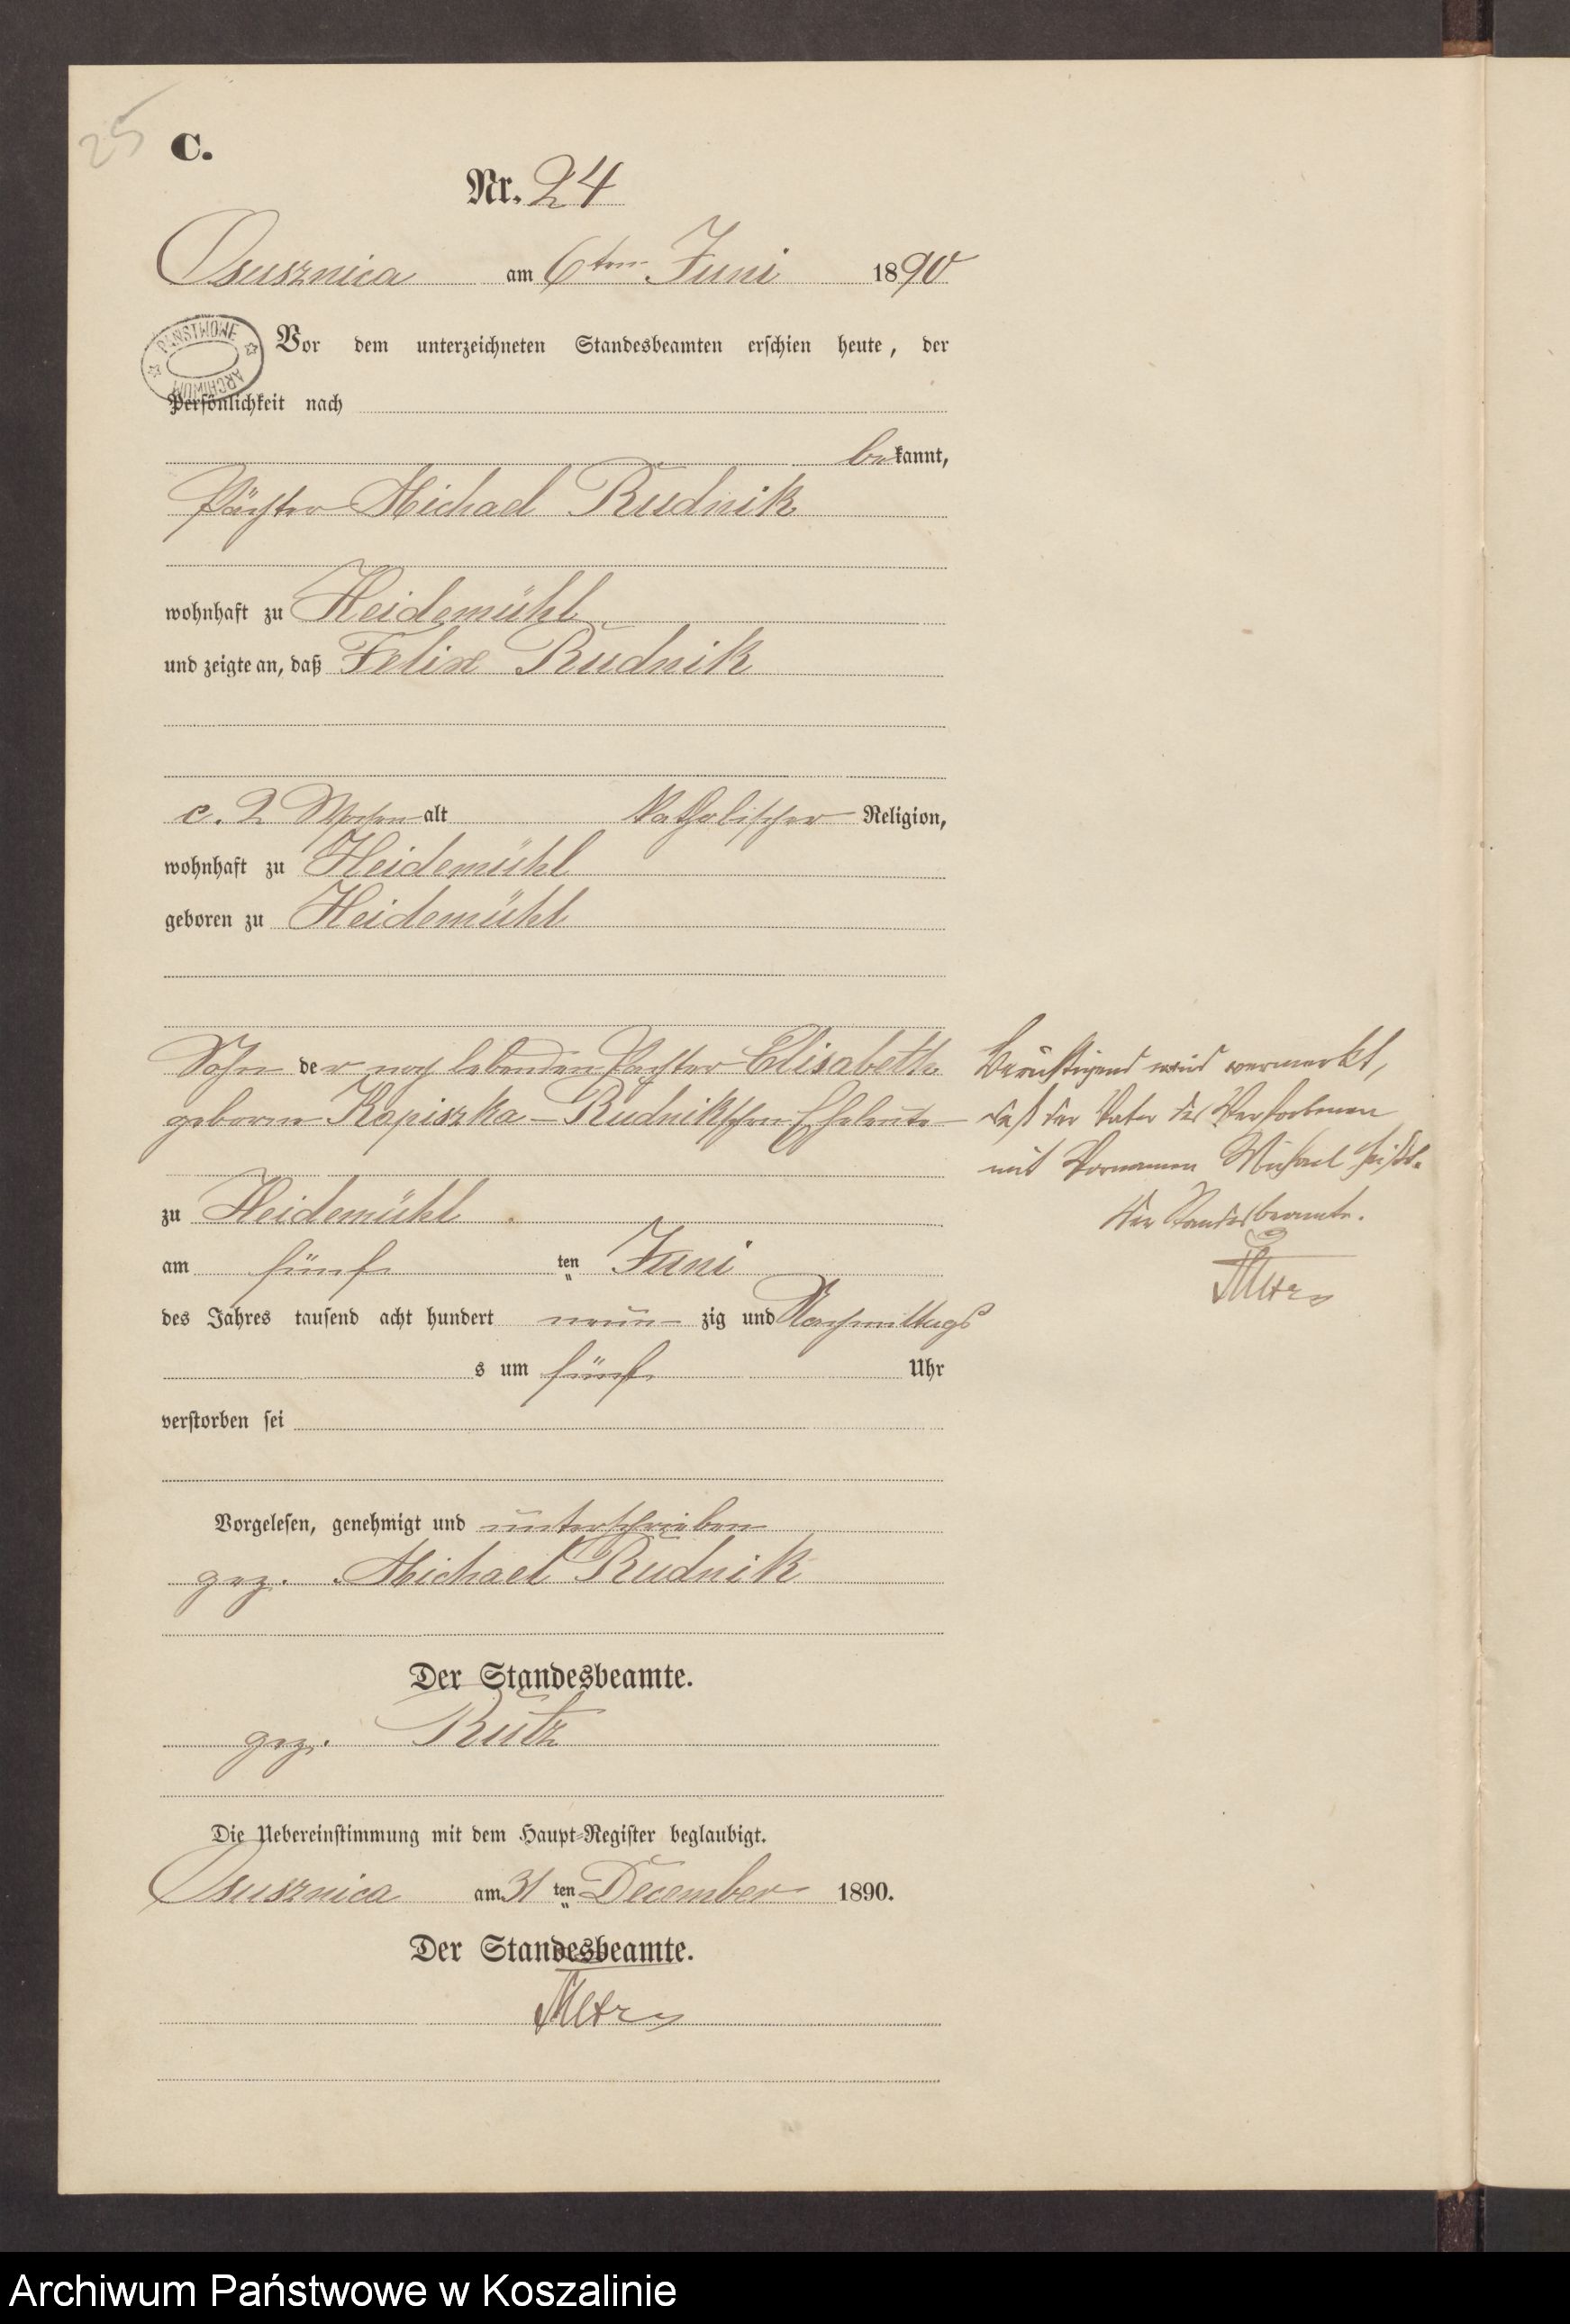 25
C.
Nr. 24
Osusznica am 6ten Juni 1890
PAŃSTWOWE ARCHIWUM
Vor dem unterzeichneten Standesbeamten erschien heute, der
Persönlichkeit nach
bekannt,
Pächter Michael Rudnik
wohnhaft zu Heidemühl
und zeigte an, daß Felix Rudnik
c. 2 Wochen alt katholischer Religion,
wohnhaft zu Heidemühl
geboren zu Heidemühl
Sohn der noch lebenden Pachter Elisabeth
geborene Kapiszka-Rudnikschen Eheleute
zu Heidemühl
am fünf ten Juni
des Jahres tausend acht hundert neun zig und Nachmittags
s um fünf Uhr
verstorben sei
Vorgelesen, genehmigt und unterschrieben
gez. Michael Rudnik
Der Standesbeamte.
gez. Rutz
Die Uebereinstimmung mit dem Haupt-Register beglaubigt.
Osusznica am 31 ten December 1890.
Der Standesbeamte.
Berichtigend wird vermerkt,
daß der Vater des Verstorbenen
mit Vornamen Michael heißt.
Der Standesbeamte.
Archiwum Państwowe w Koszalinie